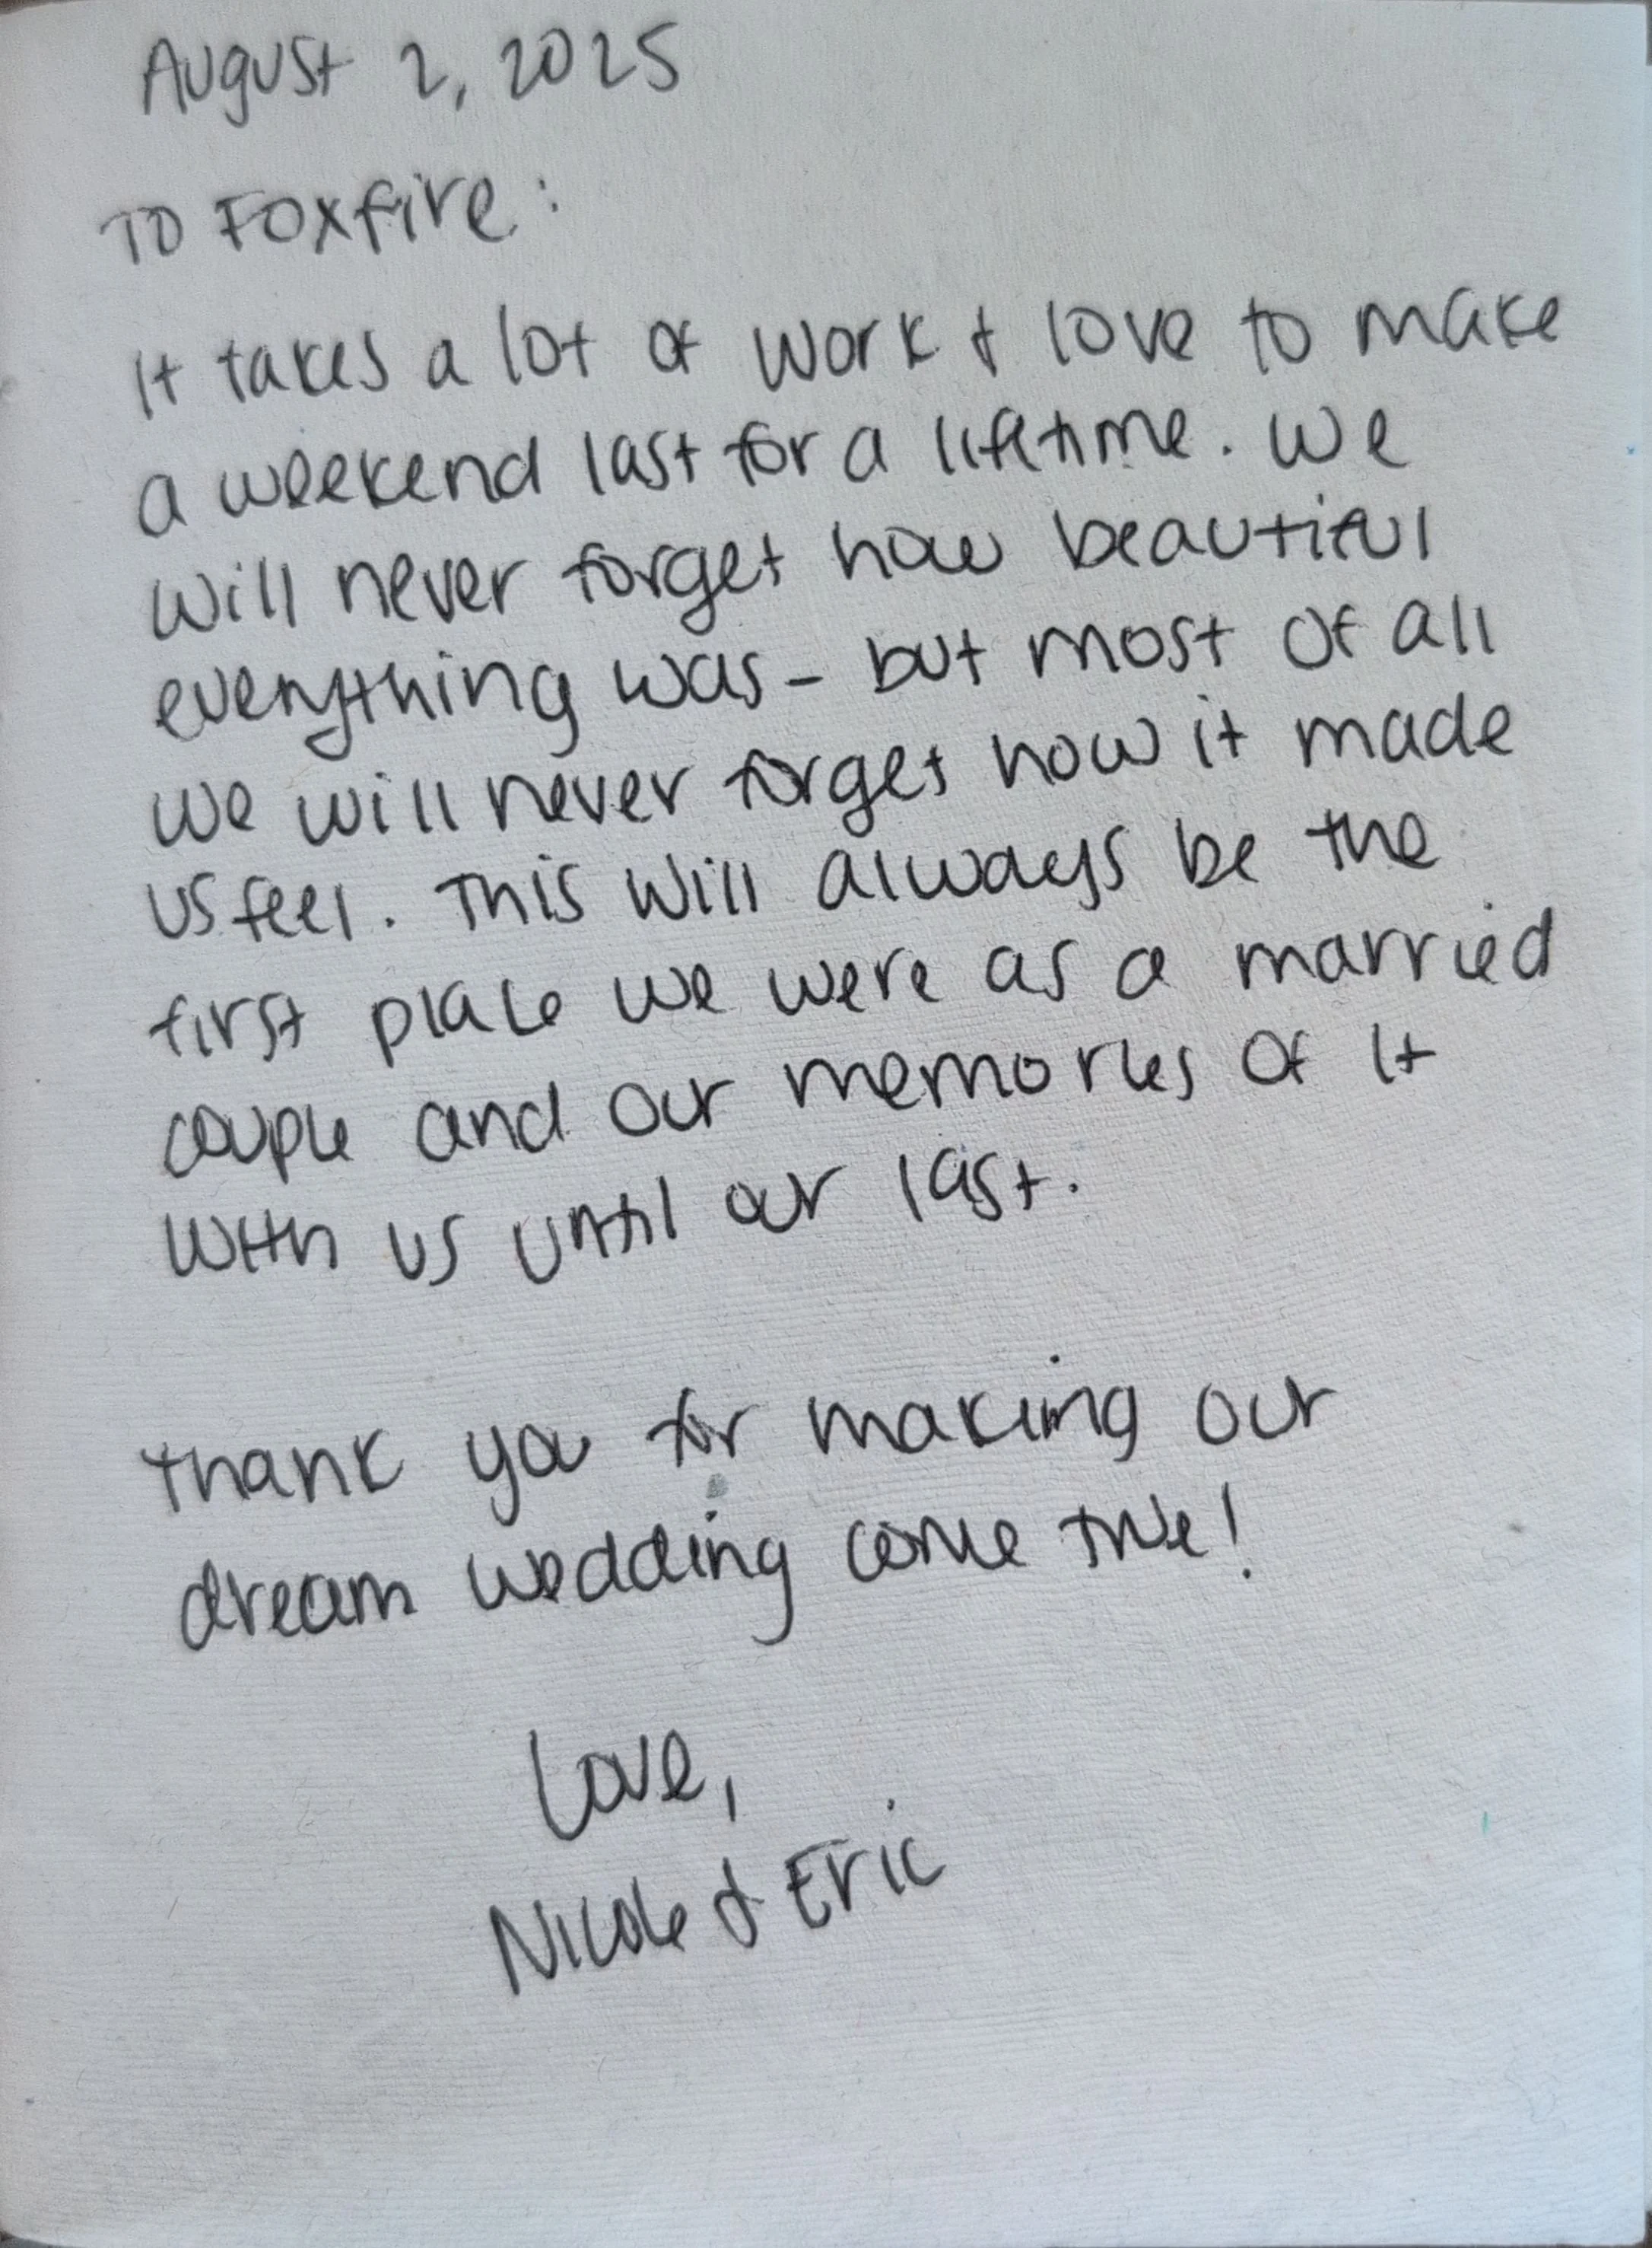 August 2, 2025
To Foxfire:
It takes a lot of work & love to make
a weekend last for a lifetime. We
will never forget how beautiful
everything was - but most of all
we will never forget how it made
us feel. This will always be the
first place we were as a married
couple and our memories of it
with us until our last.
Thank you for making our
dream wedding come true!
Love,
Nicole & Eric